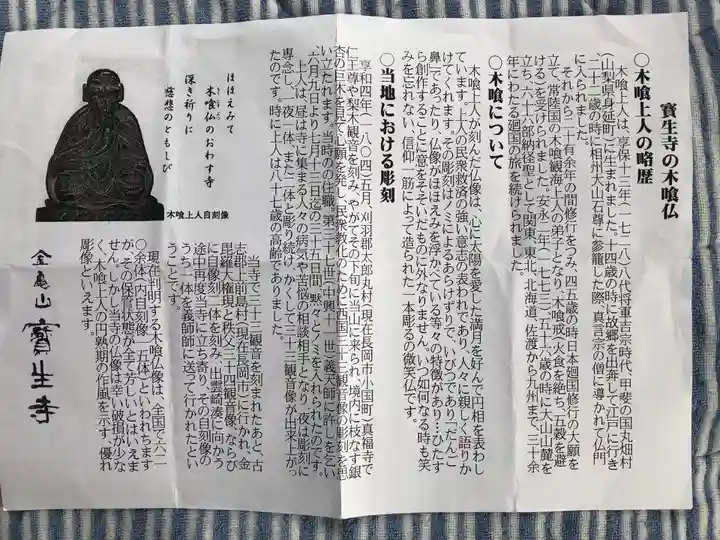 寳生寺の木喰仏
〇木喰上人の略歴
木喰上人は、享保十三年(一七二八)八代将軍吉宗時代、甲斐の国丸畑村
(山梨県身延町)に生まれました。十四歳の時に故郷を出奔して江戸に行き
二十二歳の時に相州大山石尊に参籠した際、真言宗の僧に導かれて仏門
に入られました。
それから二十有余年の間修行をつみ、四五歳の時日本廻国修行の大願を
立て、常陸国の木喰観海上人の弟子となり、木喰戒(火食を絶ち、五穀を避
ける)を受けられました。安永二年(一七七三)五十六歳の時に大山山麓を
立ち、六十六部納経聖として関東、東北、北海道、佐渡から九州まで、三十余
年にわたる廻国の旅を続けられました。
〇木喰について
木喰上人が刻んだ仏像は、心に太陽を愛した満月を好んで円相を表わし
ています。上人の民衆救済の強い意志の表われであり、人々に親しく語りか
けてくれます。その彫刻はノミによるあらけずりで、いびつであり「だんご
鼻」であったり、仏像がほほえみを浮べている等々の特徴があり…ひたす
ら創作することに意をそそいだものに外なりません。いつ如何なる時も笑
みを忘れない、信仰一筋によって造られた一本彫りの微笑仏です。
〇当地における彫刻
享和四年(一八〇四)五月、刈羽郡太郎丸村(現在長岡市小国町)真福寺で
仁王尊や梨木観音を刻み、やがてその下旬に当山に来られ、境内に枝なす銀
杏の巨木を見て心願を発し、民衆教化のために西国三十三観音像の彫刻を思
い立たれます。当時の住職、第三十七世(中興十一世)義天師に許しを乞い
、六月九日より七月十三日迄の三十五日間、黙々とノミを入れられたのです。
上人は、昼は寺に集まる人々の病気や苦悩の相談相手となり、夜は彫刻に
専念し、一夜一体、また一体と彫り続け、かくして三十三観音像が出来上がっ
たのです。時に上人は八十七歳の高齢でありました。
当寺で三十三観音を刻まれたあと、古
志郡上前島村(現在長岡市)に行かれ、金
毘羅大権現と秩父三十四観音像、ならび
に自刻像二体を刻み、出雲崎湊に向かう
途中再度当寺に立ち寄り、その自刻像の
うち、一体を義師師に送って行かれたとい
うことです。
現在判明してる木喰仏像は、全国で六二
〇余体(内自刻像一五体)といわれます
がその保管状態が全て芳しいとはいえま
せん。しかし、当寺の仏像は幸い破損が少な
く、木喰上人の円熟期の作風を示す、優れ
た彫像といえます。
ほほえみて
木喰仏のおわす寺
深き祈りに
慈悲のともしび
木喰上人自刻像
金亀山 寳生寺